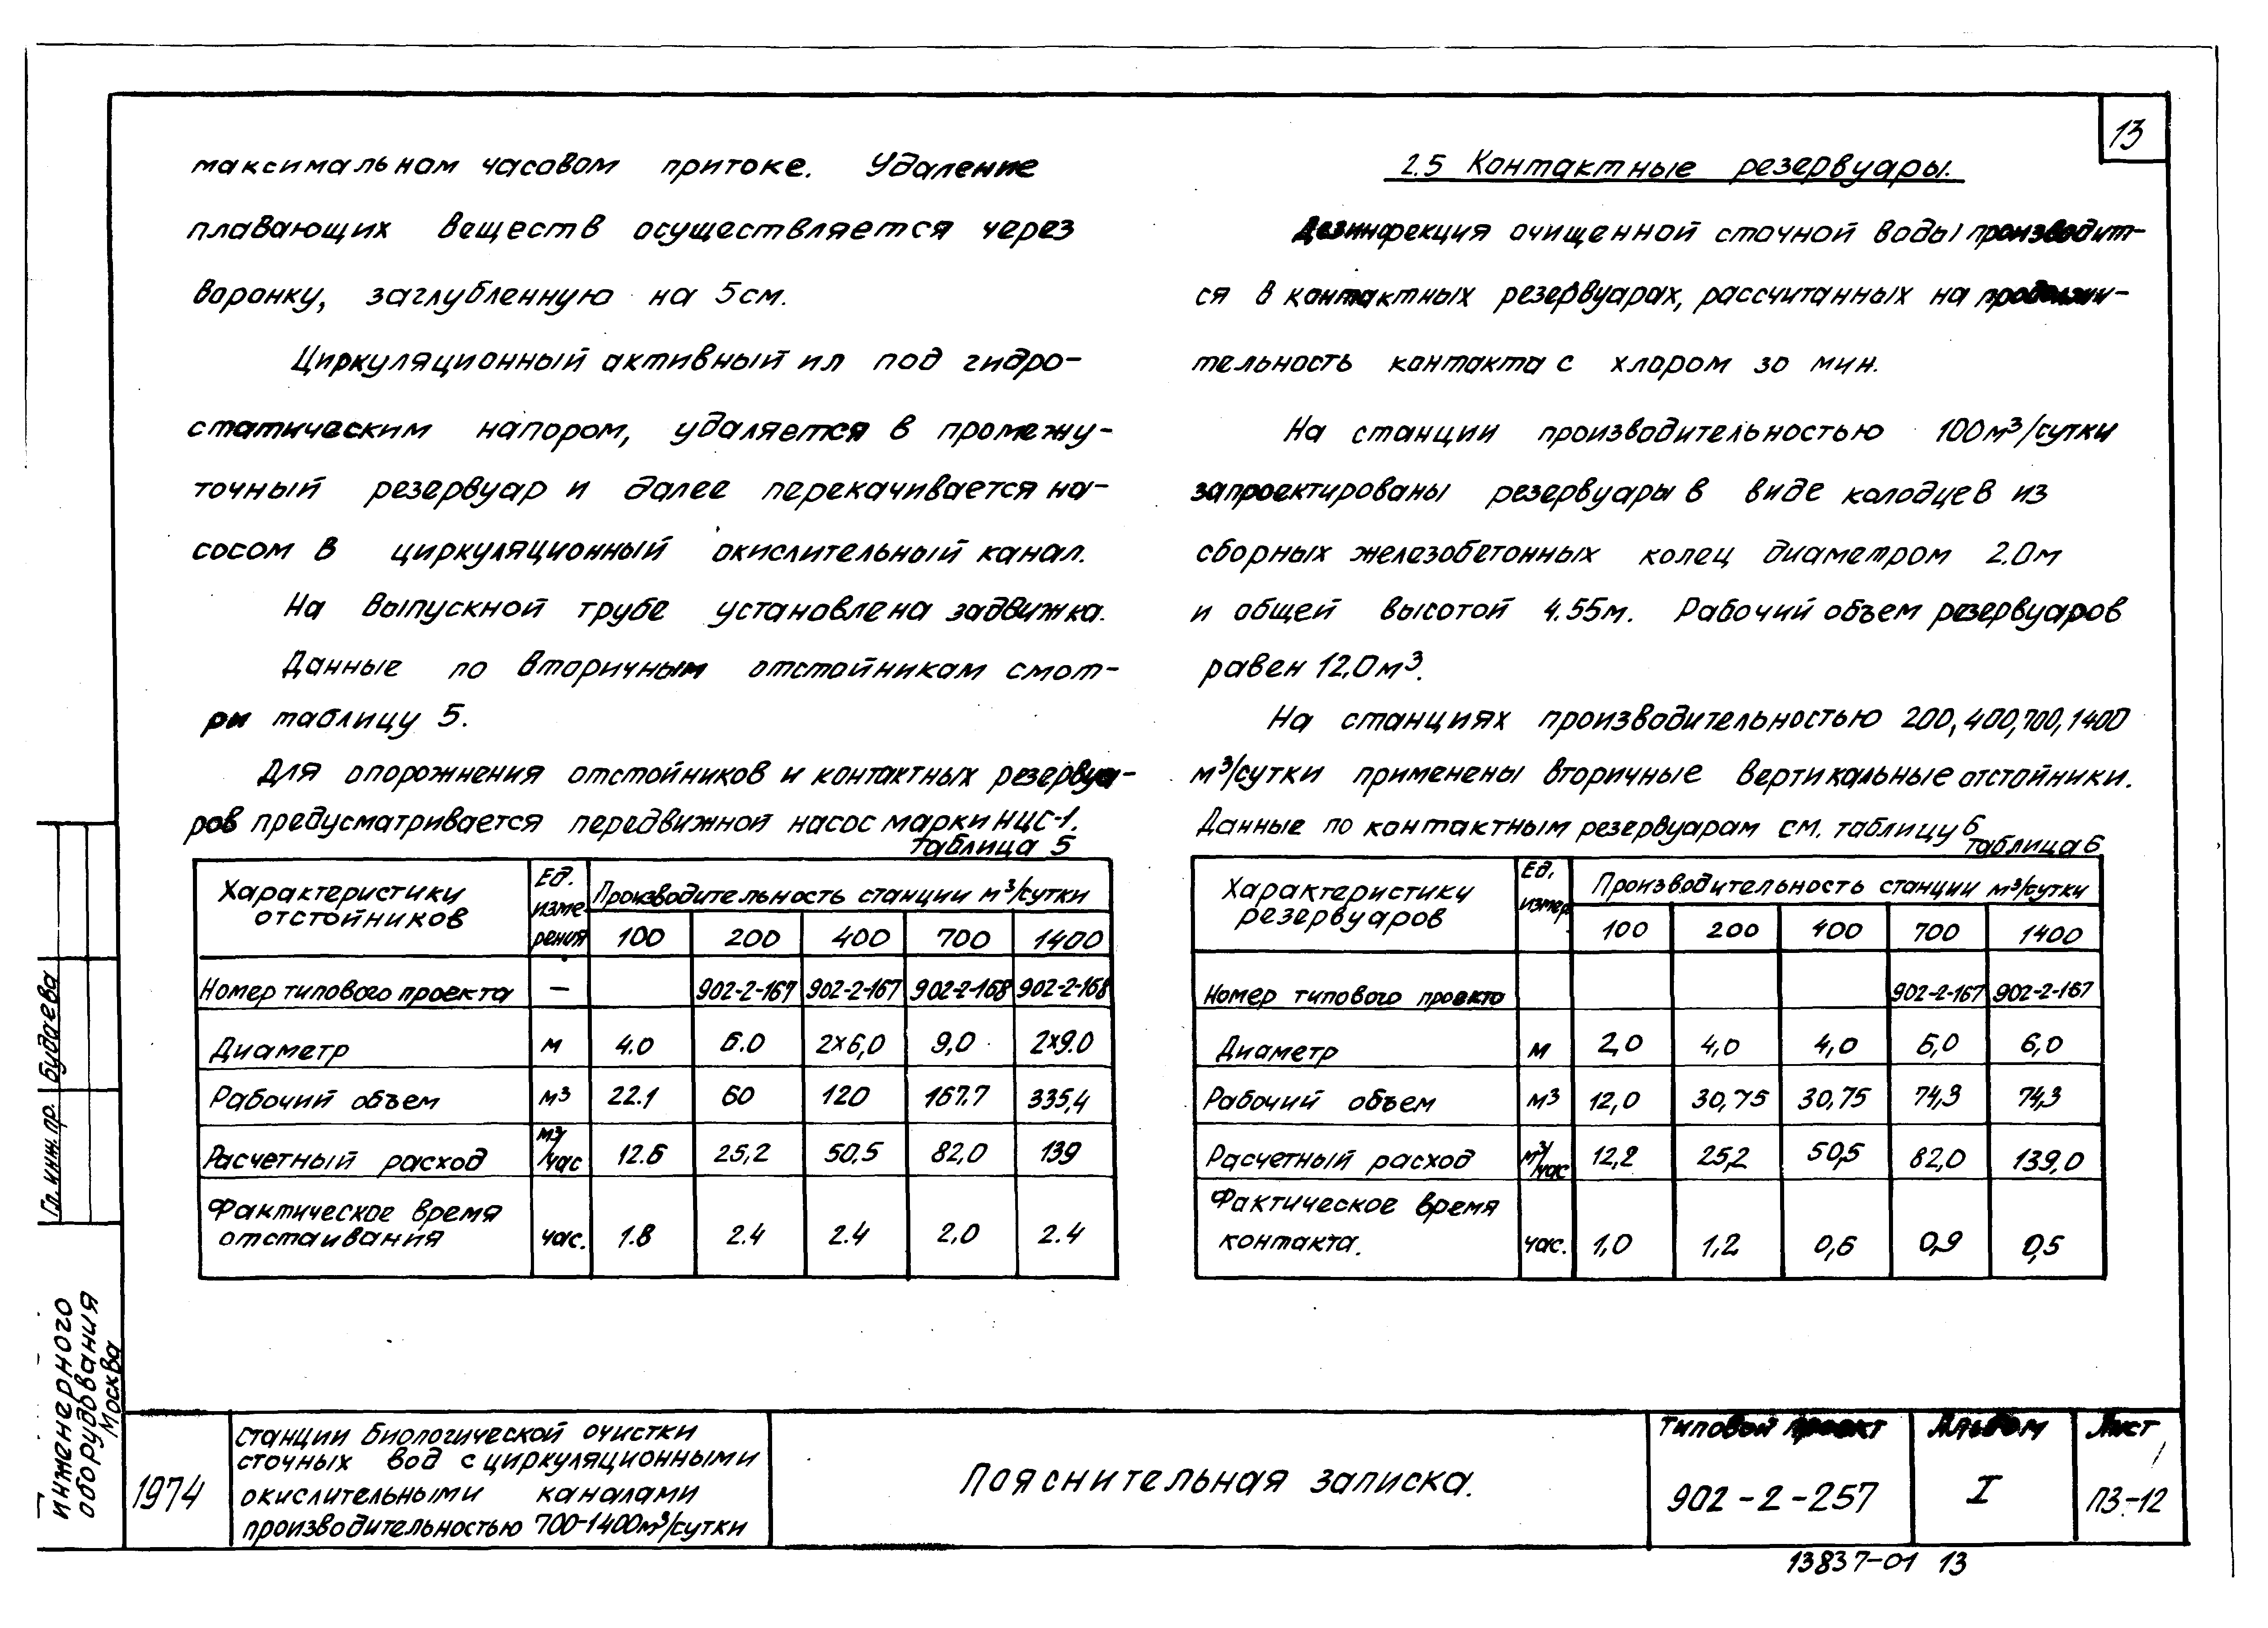 13
максимальном часовом притоке. Удаление
плавающих веществ осуществляется через
воронку, заглубленную на 5см.
Циркуляционный активный ил под гидро-
статическим напором, удаляется в промежу-
точный резервуар и далее перекачивается на-
сосом в циркуляционный окислительный канал.
На выпускной трубе установлена задвижка.
Данные по вторичным отстойникам смот-
ри таблицу 5.
Для опорожнения отстойников и контактных резервуа-
ров предусматривается передвижной насос марки НЦС-1.
таблица 5
Характеристики отстойников | Ед. изме-рения | Производительность станции м³/сутки
100 | 200 | 400 | 700 | 1400
Номер типового проекта | — | | 902-2-167 | 902-2-167 | 902-2-168 | 902-2-168
Диаметр | м | 4.0 | 6.0 | 2×6,0 | 9,0 | 2×9.0
Рабочий объем | м³ | 22.1 | 60 | 120 | 167.7 | 335,4
Расчетный расход | м³/час | 12.6 | 25,2 | 50,5 | 82,0 | 139
Фактическое время отстаивания | час. | 1.8 | 2.4 | 2.4 | 2,0 | 2.4
2.5 Контактные резервуары.
Дезинфекция очищенной сточной воды производит-
ся в контактных резервуарах, рассчитанных на продолжи-
тельность контакта с хлором 30 мин.
На станции производительностью 100м³/сутки
запроектированы резервуары в виде колодцев из
сборных железобетонных колец диаметром 2.0м
и общей высотой 4.55м. Рабочий объем резервуаров
равен 12,0м³.
На станциях производительностью 200, 400, 700, 1400
м³/сутки применены вторичные вертикальные отстойники.
Данные по контактным резервуарам см. таблицу 6
таблица 6
Характеристику резервуаров | Ед. измер. | Производительность станции м³/сутки
100 | 200 | 400 | 700 | 1400
Номер типового проекта | | | | | 902-2-167 | 902-2-167
Диаметр | м | 2,0 | 4,0 | 4,0 | 6,0 | 6,0
Рабочий объем | м³ | 12,0 | 30,75 | 30,75 | 74,3 | 74,3
Расчетный расход | м³/час | 12,2 | 25,2 | 50,5 | 82,0 | 139,0
Фактическое время контакта. | час. | 1,0 | 1,2 | 0,6 | 0,9 | 0,5
Гл. инж. пр. Будаева
инженерного
оборудования
Москва
1974
станции биологической очистки
сточных вод с циркуляционными
окислительными каналами
производительностью 700-1400м³/сутки
Пояснительная записка.
типовой проект
902-2-257
Альбом
I
Лист
ПЗ-12
13837-01 13